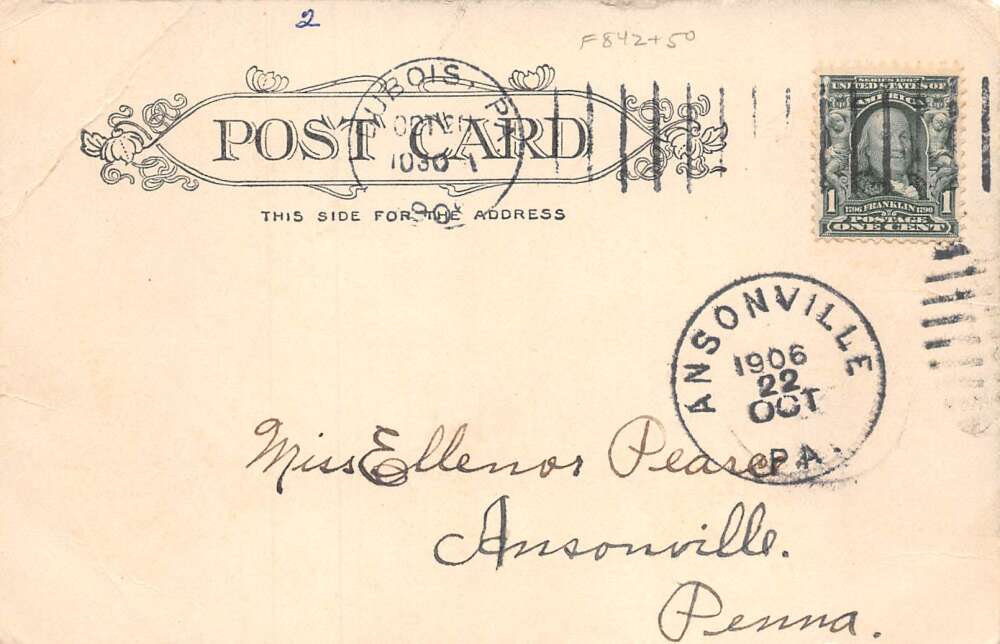 2
F842+50
DUBOIS, PA
OCT
1030
190
POST CARD
THIS SIDE FOR THE ADDRESS
SERIES 1902
UNITED STATES OF
AMERICA
1 1
1706 FRANKLIN 1790
POSTAGE
ONE CENT
ANSONVILLE
1906
22
OCT
PA.
Miss Ellenor Pearce
Ansonville.
Penna.